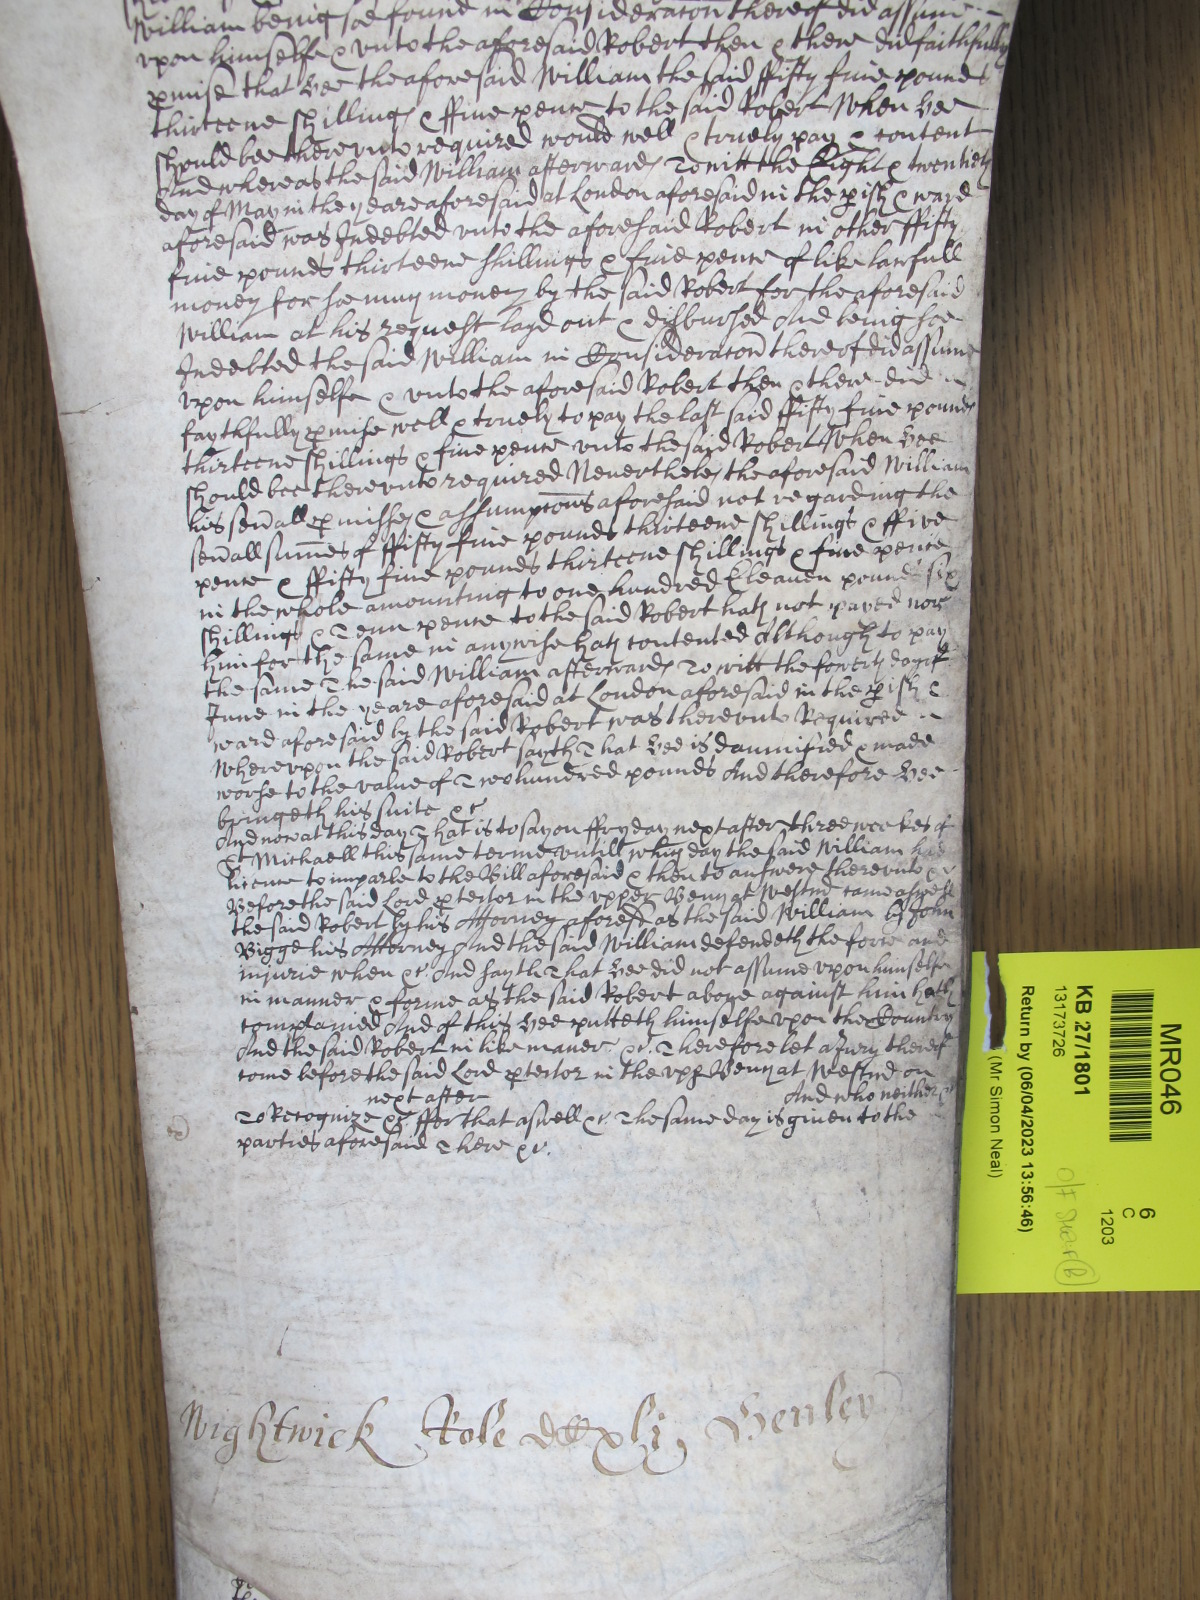 William being soe found in Consideracon thereof did assume
vpon himselfe & vnto the aforesaid Robert then & there did faithfully
pmise that hee the aforesaid William the said ffifty fiue pounds
thirteene shillings & ffiue pence to the said Robert When hee
should bee therevnto required would well & truely pay & content
And whereas the said William afterwards To witt the Eight & twentieth
day of May in the yeare aforesaid at London aforesaid in the pish & ward
aforesaid was Indebted vnto the aforesaid Robert in other ffifty
fiue pounds thirteene shillings & fiue pence of like lawfull
money for soe much money by the said Robert for the aforesaid
William at his request layd out & disbursed And being soe
Indebted the said William in Consideracon thereof did assume
vpon himselfe & vnto the aforesaid Robert then & there did
faythfully pmise well & truely to pay the last said ffifty fiue pounds
thirteene shillings & fiue pence vnto the said Robert When hee
should bee therevnto required Neuertheles the aforesaid William
his seuall pmisses & assumpcons aforesaid not regarding the
seuall summes of ffifty fiue pounds thirteene shillings & ffive
pence & ffifty fiue pounds thirteene shillings & fiue pence
in the whole amounting to one hundred Eleauen pounds six
shillings & Tenn pence to the said Robert hath not payed nor
him for the same in anywise hath contented Although to pay
the same The said William afterwards To witt the fowerth day of
June in the yeare aforesaid at London aforesaid in the pish &
ward aforesaid by the said Robert was therevnto Required
Wherevpon the said Robert sayth That hee is damnified & made
worse to the value of Two hundred pounds And therefore hee
bringeth his suite &c
And now at this day That is to say on ffryday next after three weekes of
St Michaell this same terme vntill which day the said William had
licence to imparle to the Bill aforesaid & then to answere therevnto &c
Before the said Lord ptector in the vpper Bench at Westm came aswell
the said Robert by his Attorney aforesd as the said William by John
Bigge his Attorney And the said William defendeth the force and
iniurie when &c. And sayth That hee did not assume vpon himselfe
in manner & forme as the said Robert above against him hath
complained And of this hee putteth himselfe vpon the Country
And the said Robert in like maner &c. Therefore let a Jury thereof
come before the said Lord ptector in the vpp Bench at Westm on
next after And who neither &c
To Recognize &c ffor that aswell &c. The same day is given to the
parties aforesaid There &c.
Nightwick Role dCCxlij Henley
MR046
6
C
1203
KB 27/1801
13173726
Return by (06/04/2023 13:56:46)
(Mr Simon Neal)